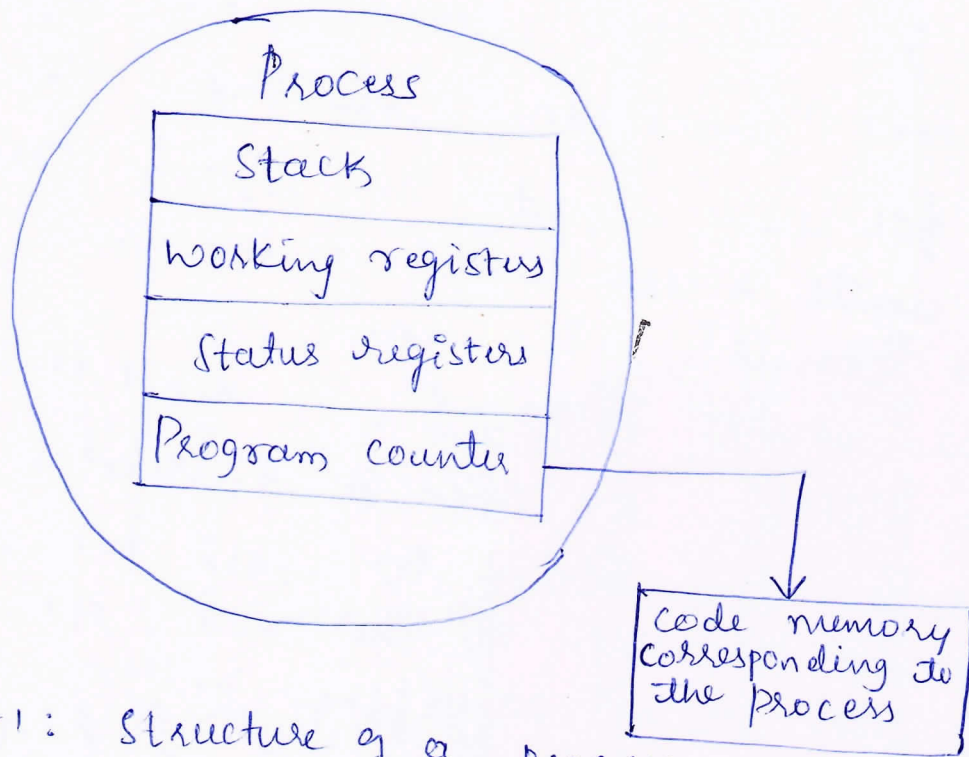 Process
Stack
Working registers
Status registers
Program counter
code memory
corresponding to
the process
1: Structure of a